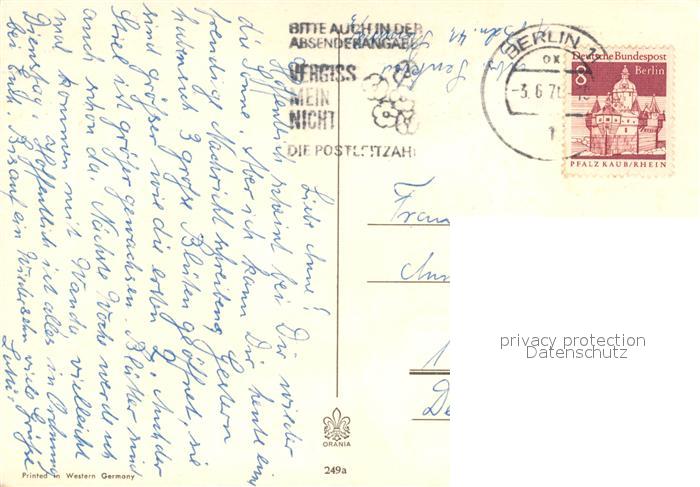 BITTE AUCH IN DER
ABSENDERANGABE
VERGISS
MEIN
NICHT
DIE POSTLEITZAHL
BERLIN 1
-3.6.7
1
Deutsche Bundespost
8
Berlin
PFALZ KAUB/RHEIN
Liebe Anne!
Hoffentlich scheint bei Dir wieder
die Sonne. Aber ich kann Dir heute eine
freudige Nachricht schreiben, Gestern
hat 3 große Blüten geöffnet, sie
sind größer wie die ersten 2. Auch der
ist größer gewachsen. Blätter sind
auch schon da. Nächste Woche werde ich
mal kommen mit Wanda, vielleicht
Dienstag. Hoffentlich ist alles in Ordnung
bei Euch. Bis auf ein Wiedersehn viele Grüße
Frau
1
privacy protection
Datenschutz
ORANIA
249a
Printed in Western Germany